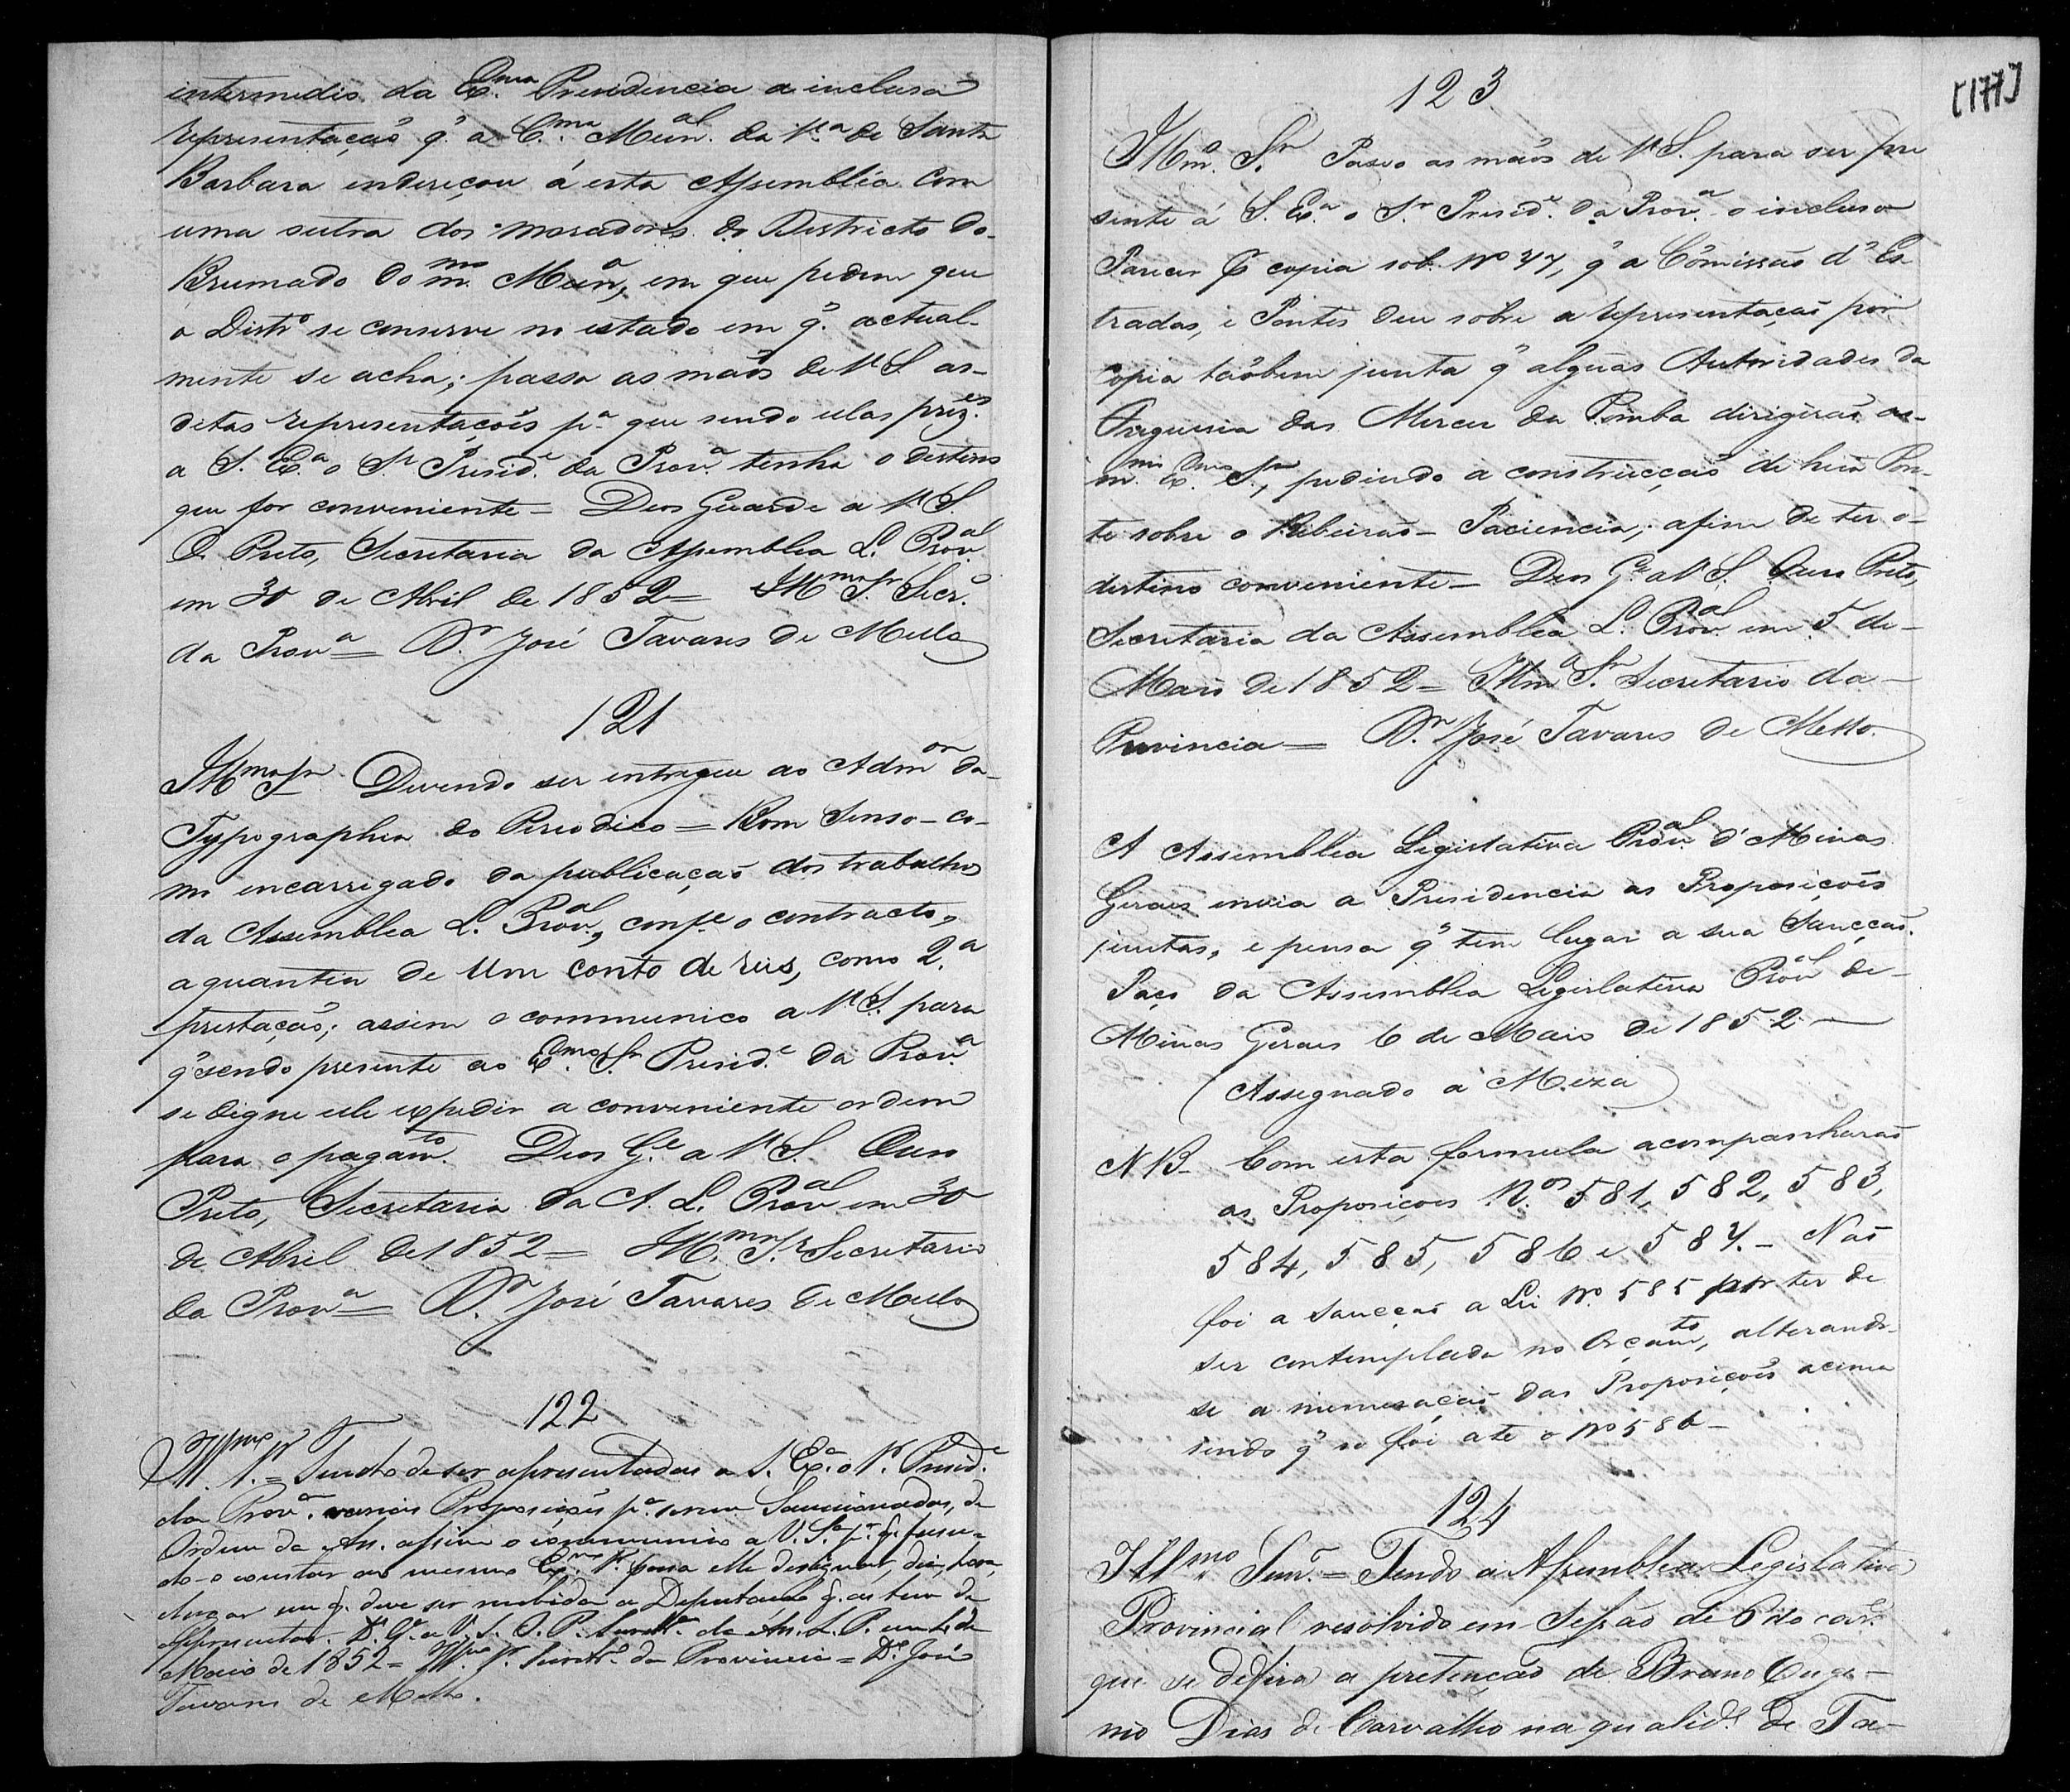 intermedio da Ex.ma Presidencia a inclusa
representação q̃ a C.ma Mun.al da V.a de Santa
Barbara endereçou á esta Assembléa com
uma outra dos moradores do Districto do
Brumado do m.mo Mun.o, em que pedem que
o Distr.o se conserve no estado em q̃. actual-
mente se acha; passo as mãos de V.S. as-
ditas representações p.a que sendo ellas prez.es
a S. Ex.a o Sr. Presid.e da Prov.a tenha o destino
que for conveniente = Deos Guarde a V.S.
O. Preto, Secretaria da Assembléa L. Prov.al
em 30 de Abril de 1852 = Ill.mo Sr. Secr.o
da Prov.a = Dr. José Tavares de Mello
121
Ill.mo Sr. Devendo ser entregue ao Adm.or da
Typographia do Periodico = Bom Senso - co-
mo encarregado da publicação dos trabalhos
da Assembléa L. Prov.al, conf.e o contracto,
a quantia de Um conto de reis, como 2.a
prestação; assim o communico a V.S. para
q̃ sendo presente ao Ex.mo Sr. Presid.e da Prov.a
se digne elle expedir a conveniente ordem
para o pagam.to. Deos G.e a V.S. Ouro
Preto, Secretaria da A. L. Prov.al em 30
de Abril de 1852 = Ill.mo Sr. Secretario
da Prov.a = Dr. José Tavares de Mello
122
Ill.mo Sr. = Tendo de ser apresentadas a S. Ex.a o Sr. Presid.e
da Prov.a varias Proposições p.a serem Sanccionadas, de
Ordem da Ass. assim o communico a V. S.a p.a q. fasen-
do-o constar ao mesmo Ex.mo Sr. possa elle designar, dia, hora,
e lugar em q. deve ser recebida a Deputação q. as tem de
apresentar. D.s G.e a V. S. O. P. Secret.a da Ass. L. P. em 4 de
Maio de 1852 = Ill.mo Sr. Secret.o da Provincia = Dr. José
Tavares de Mello.
[177]
123
Illm.o Sr. Passo as mãos de V.S. para ser pre
sente á S. Ex.a o Sr. Presid.e da Prov.a o incluso
Parecer p copia sob N.o 77, q̃ a Cõmissão d'Es-
tradas, e Pontes deu sobre a representação por
copia tãobem junta q̃ alguãs Autoridades da
Freguesia das Merces da Pomba dirigirão ao
m.mo Ex.mo Sr., pedindo a construcção de huã Pon-
te sobre o Ribeirão - Paciencia; afim de ter o-
destino conveniente = Deos G.e a V.S. Ouro Preto,
Secretaria da Assembléa L. Prov.al em 5 de-
Maio de 1852 = Illm.o Sr. Secretario da-
Provincia = Dr. José Tavares de Mello.
A Assembléa Legislativa Prov.al d'Minas
Geraes envia a Presidencia as Proposições
juntas, e pensa q̃ tem lugar a sua Sancção.
Paço da Assembléa Legislativa Prov.al de-
Minas Geraes 6 de Maio de 1852 -
(Assegnado a Meza)
NB - Com esta formula acompanharão
as Proposições N.os 581, 582, 583,
584, 585, 586 e 587. - Não
foi a sancção a Lei N.o 585 por ter de
ser contemplada no Orçam.to, alterando-
se a numeração das Proposições acima
sendo q̃ so foi até o N.o 586 -
124
Ill.mo Senr. = Tendo a Assembléa Legislativa
Provincial resolvido em Sessão de 6 do corr.e
que se defira a pretenção de Bruno Euge-
nio Dias de Carvalho na qualid.e de Ta-